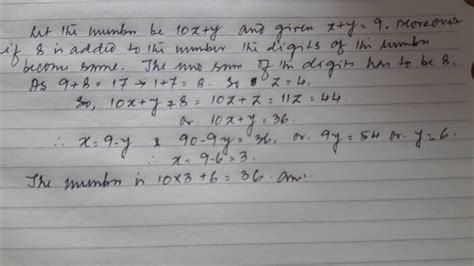 Let the number be 10x+y and given x+y = 9. Moreover
if 8 is added to the number the digits of the number
become same. The new sum of the digits has to be 8.
As 9+8 = 17 → 1+7 = 8. So z = 4.
So, 10x+y+8 = 10z+z = 11z = 44.
or 10x+y = 36.
∴ x = 9-y & 90-9y = 36, or 9y = 54 or y = 6.
∴ x = 9-6 = 3.
The number is 10×3+6 = 36. Ans.